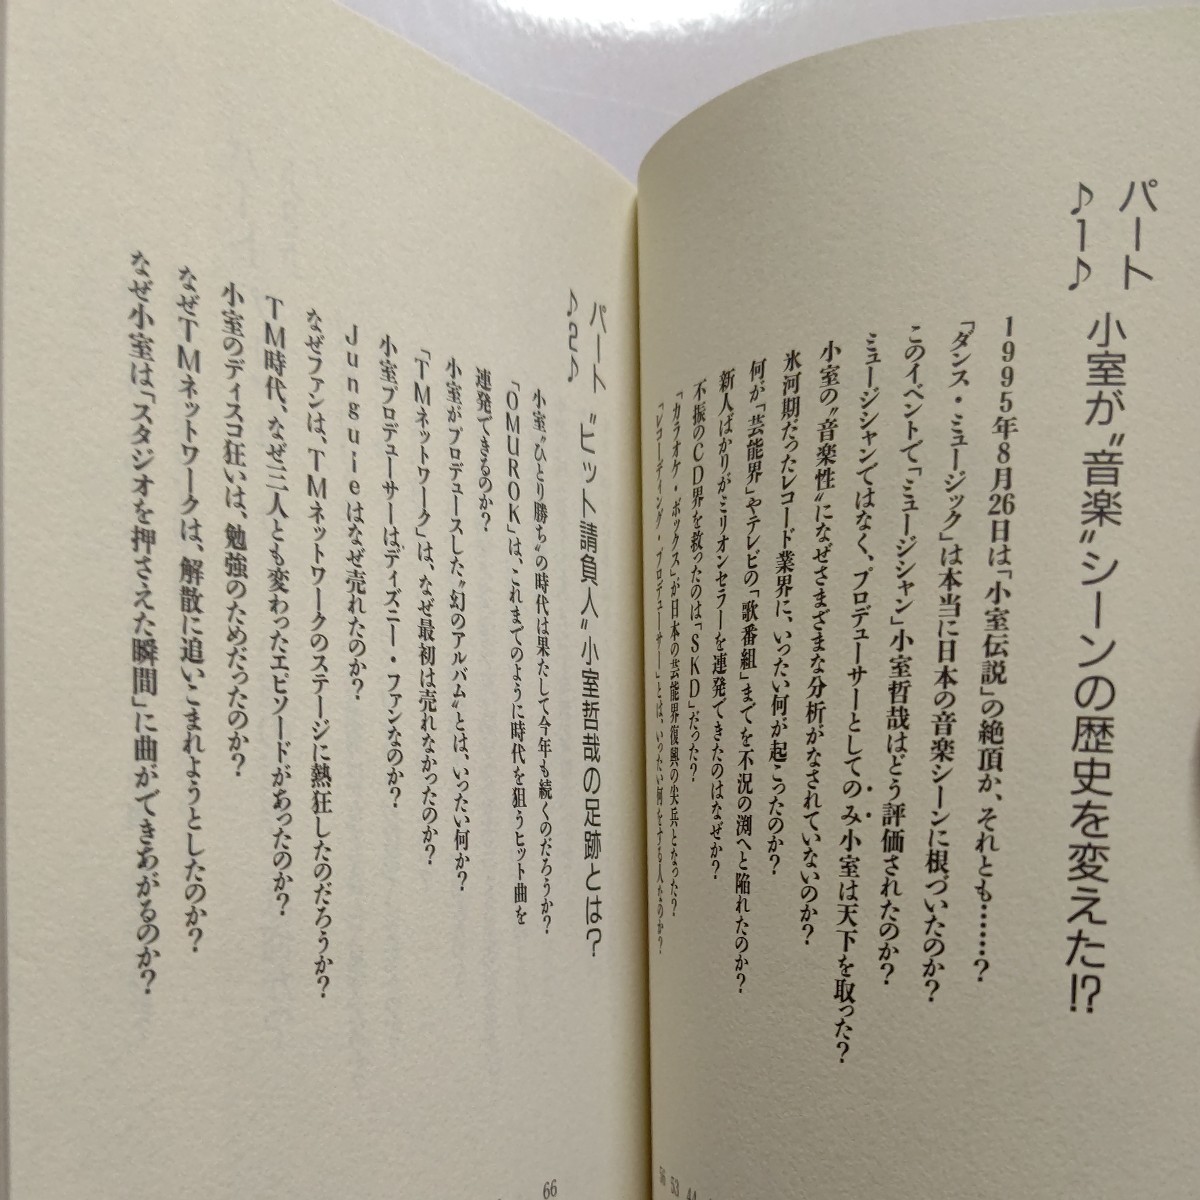 パート
♪1♪
小室が〝音楽〟シーンの歴史を変えた!?
1995年8月26日は「小室伝説」の絶頂か、それとも……?
「ダンス・ミュージック」は本当に日本の音楽シーンに根づいたのか?
このイベントで「ミュージシャン」小室哲哉はどう評価されたのか?
ミュージシャンではなく、プロデューサーとしてのみ小室は天下を取った?
小室の〝音楽性〟になぜさまざまな分析がなされていないのか?
氷河期だったレコード業界に、いったい何が起こったのか?
何が「芸能界」やテレビの「歌番組」までを不況の渕へと陥れたのか?
新人ばかりがミリオンセラーを連発できたのはなぜか?
不振のCD界を救ったのは「SKD」だった?
「カラオケ・ボックス」が日本の芸能界復興の尖兵となった?
「レコーディング・プロデューサー」とは、いったい何をする人なのか?
44
53
56
パート
♪2♪
〝ヒット請負人〟小室哲哉の足跡とは?
小室〝ひとり勝ち〟の時代は果たして今年も続くのだろうか?
「OMUROK」は、これまでのように時代を狙うヒット曲を
連発できるのか?
小室がプロデュースした〝幻のアルバム〟とは、いったい何か?
「TMネットワーク」は、なぜ最初は売れなかったのか?
小室プロデューサーはディズニー・ファンなのか?
Junguieはなぜ売れたのか?
なぜファンは、TMネットワークのステージに熱狂したのだろうか?
TM時代、なぜ三人とも変わったエピソードがあったのか?
小室のディスコ狂いは、勉強のためだったのか?
なぜTMネットワークは、解散に追いこまれようとしたのか?
なぜ小室は「スタジオを押さえた瞬間」に曲ができあがるのか?
66